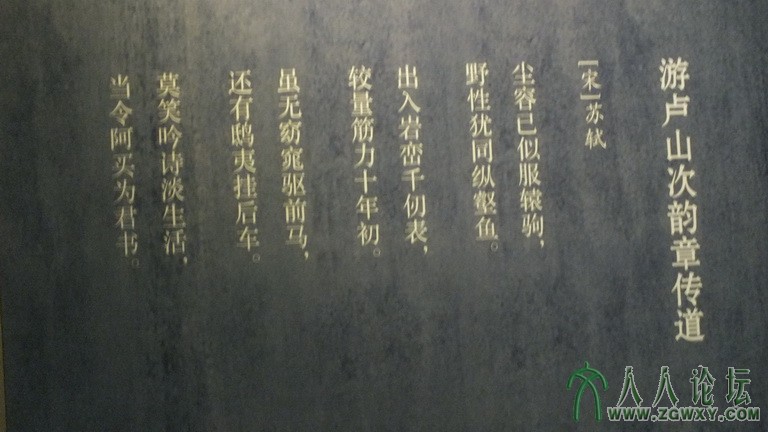 游卢山次韵章传道
[宋]苏轼
尘容已似服辕驹，
野性犹同纵壑鱼。
出入岩峦千仞表，
较量筋力十年初。
虽无窈窕驱前马，
还有鸱夷挂后车。
莫笑吟诗淡生活，
当令阿买为君书。
人人论坛
WWW.ZGWXY.COM